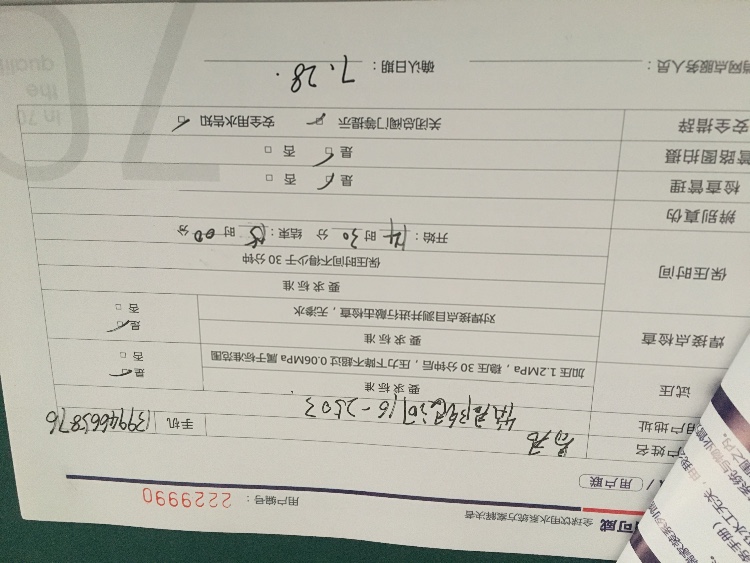 可威 全球饮用水系统方案解决者
用户编号：2229990
用户联
户姓名
手机 13994665876
用户地址 16-2503
试压 要求标准
加压1.2MPa，稳压30分钟后，压力下降不超过0.06MPa属于标准范围
是 否
焊接点检查 要求标准
对焊接点目测并进行敲击检查，无渗水
是 否
保压时间 要求标准
保压时间不得少于30分钟
开始：14时30分 结束：15时00分
辨别真伪
检查管理 是 否
管路图拍摄 是 否
安全措辞 关闭总阀门等提示 安全用水告知
网点服务人员： 确认日期：7.28.
in 70
the
quali